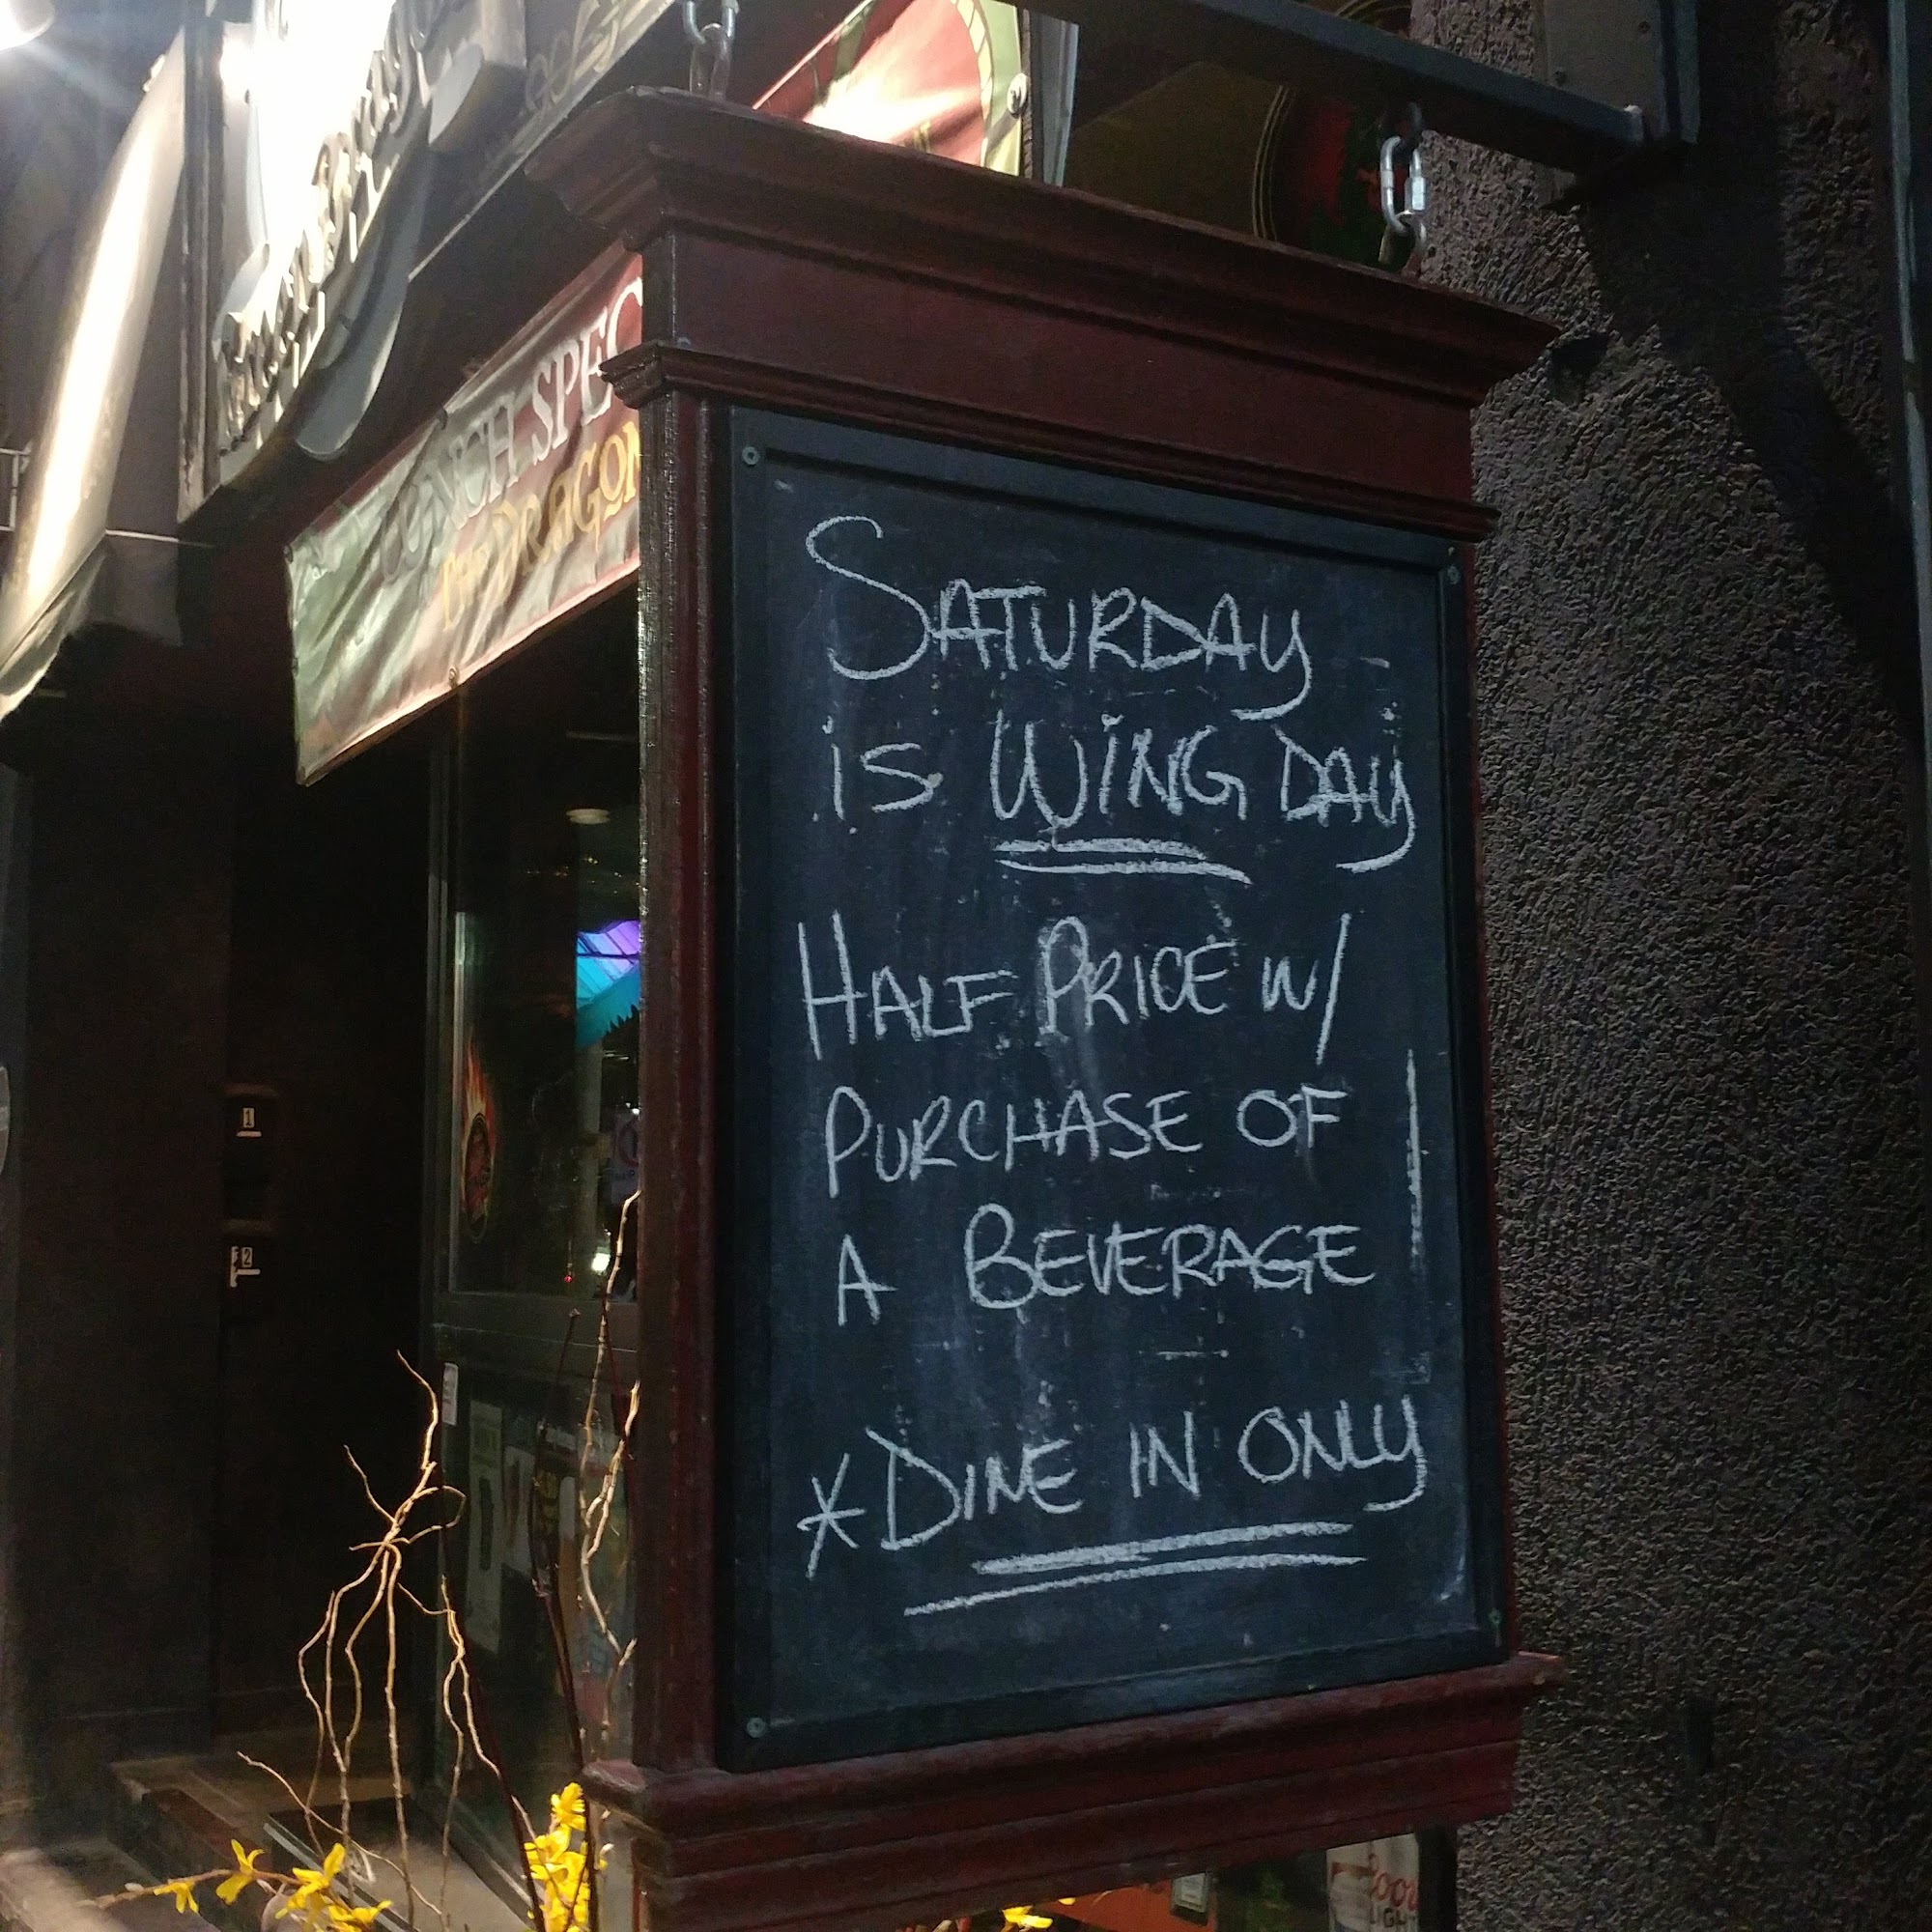 LUNCH SPEC
THE DRAGON
SATURDAY
is WiNG DAY
HALF PRICE W/
PURCHASE OF
A BEVERAGE
*DINE IN ONLY
1
2
LIGHT